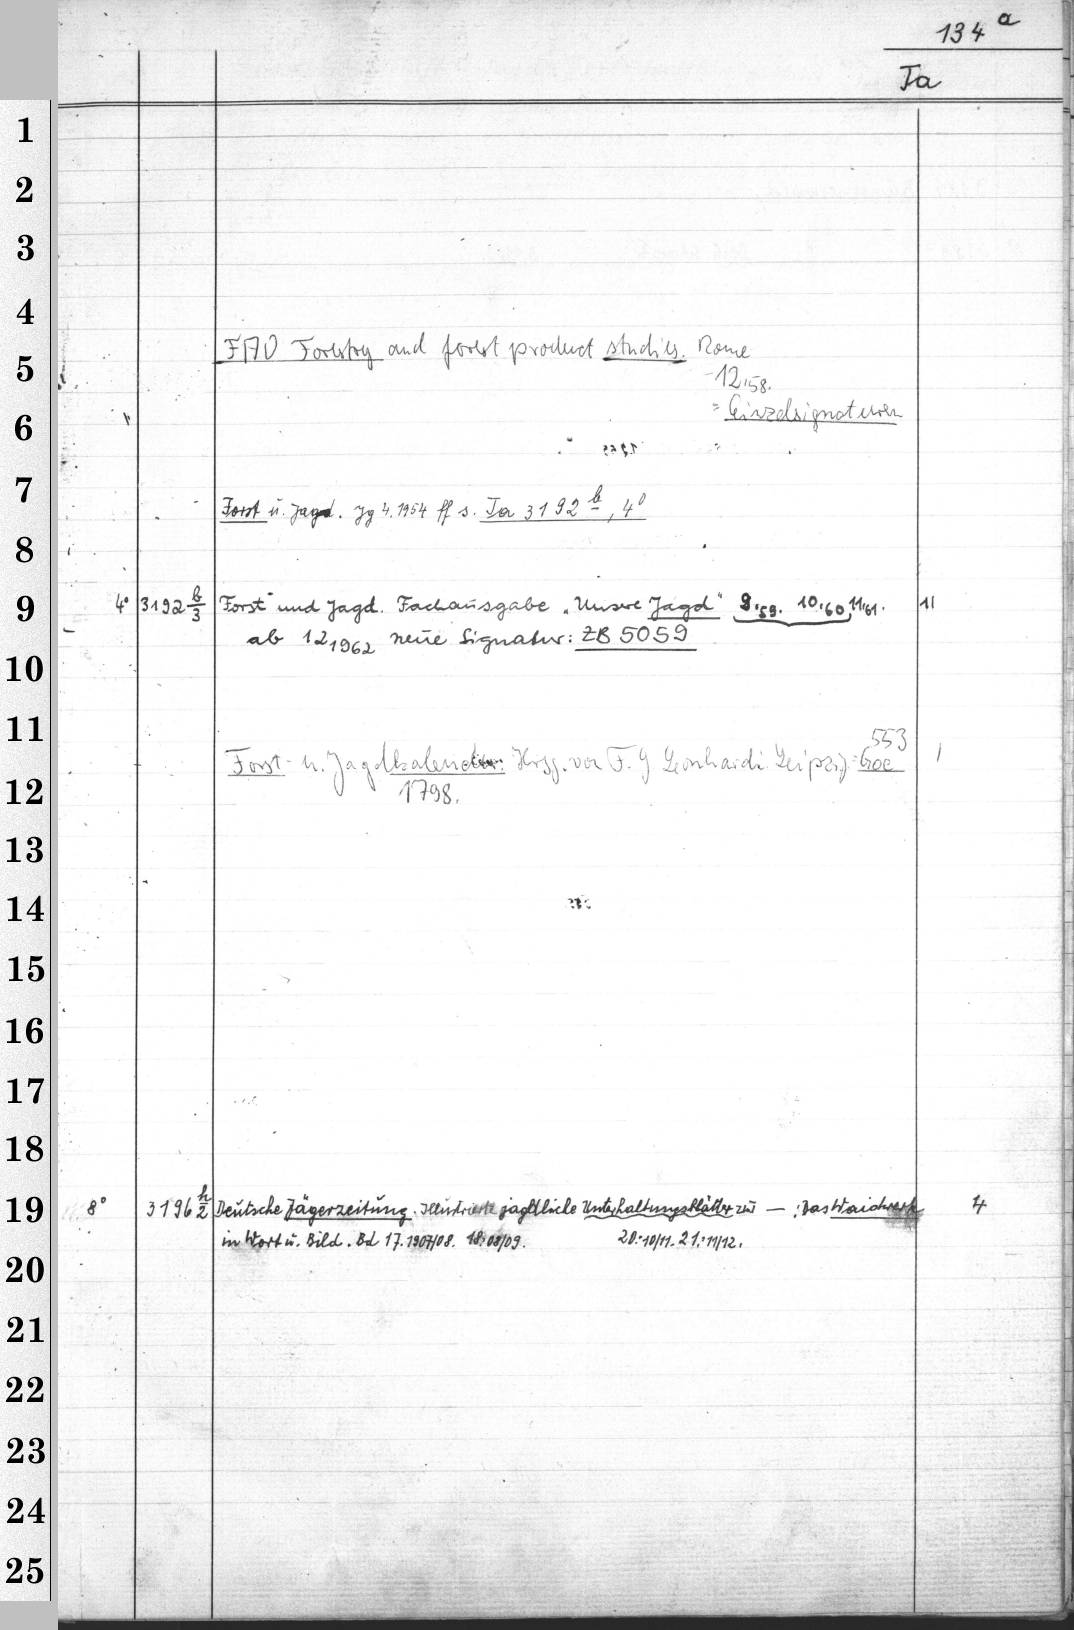 134 a
Ta
1
2
3
4
FAO Forestry and forest product studies. Rome
5
12.58.
= Einzelsignaturen
6
7
Forst u. Jagd. Jg 4.1954 ff s. Ta 3192 b, 4°
8
9 4° 3192 b/3 Forst und Jagd. Fachausgabe „Unsere Jagd" 9.59. 10.60 11.61. 11
ab 12 1962 neue Signatur: ZB 5059
10
11
553
Forst- u. Jagdkalender. Hrsg. von F. G Leonhardi Leipzig = Goe
12
1798.
13
14
15
16
17
18
19 8° 3196 h/2 Deutsche Jägerzeitung. Illustrierte jagdliche Unterhaltungsblätter zur — : Das Waidwerk 4
in Wort u. Bild. Bd 17.1907/08. 18.08/09. 20.10/11. 21.11/12.
20
21
22
23
24
25